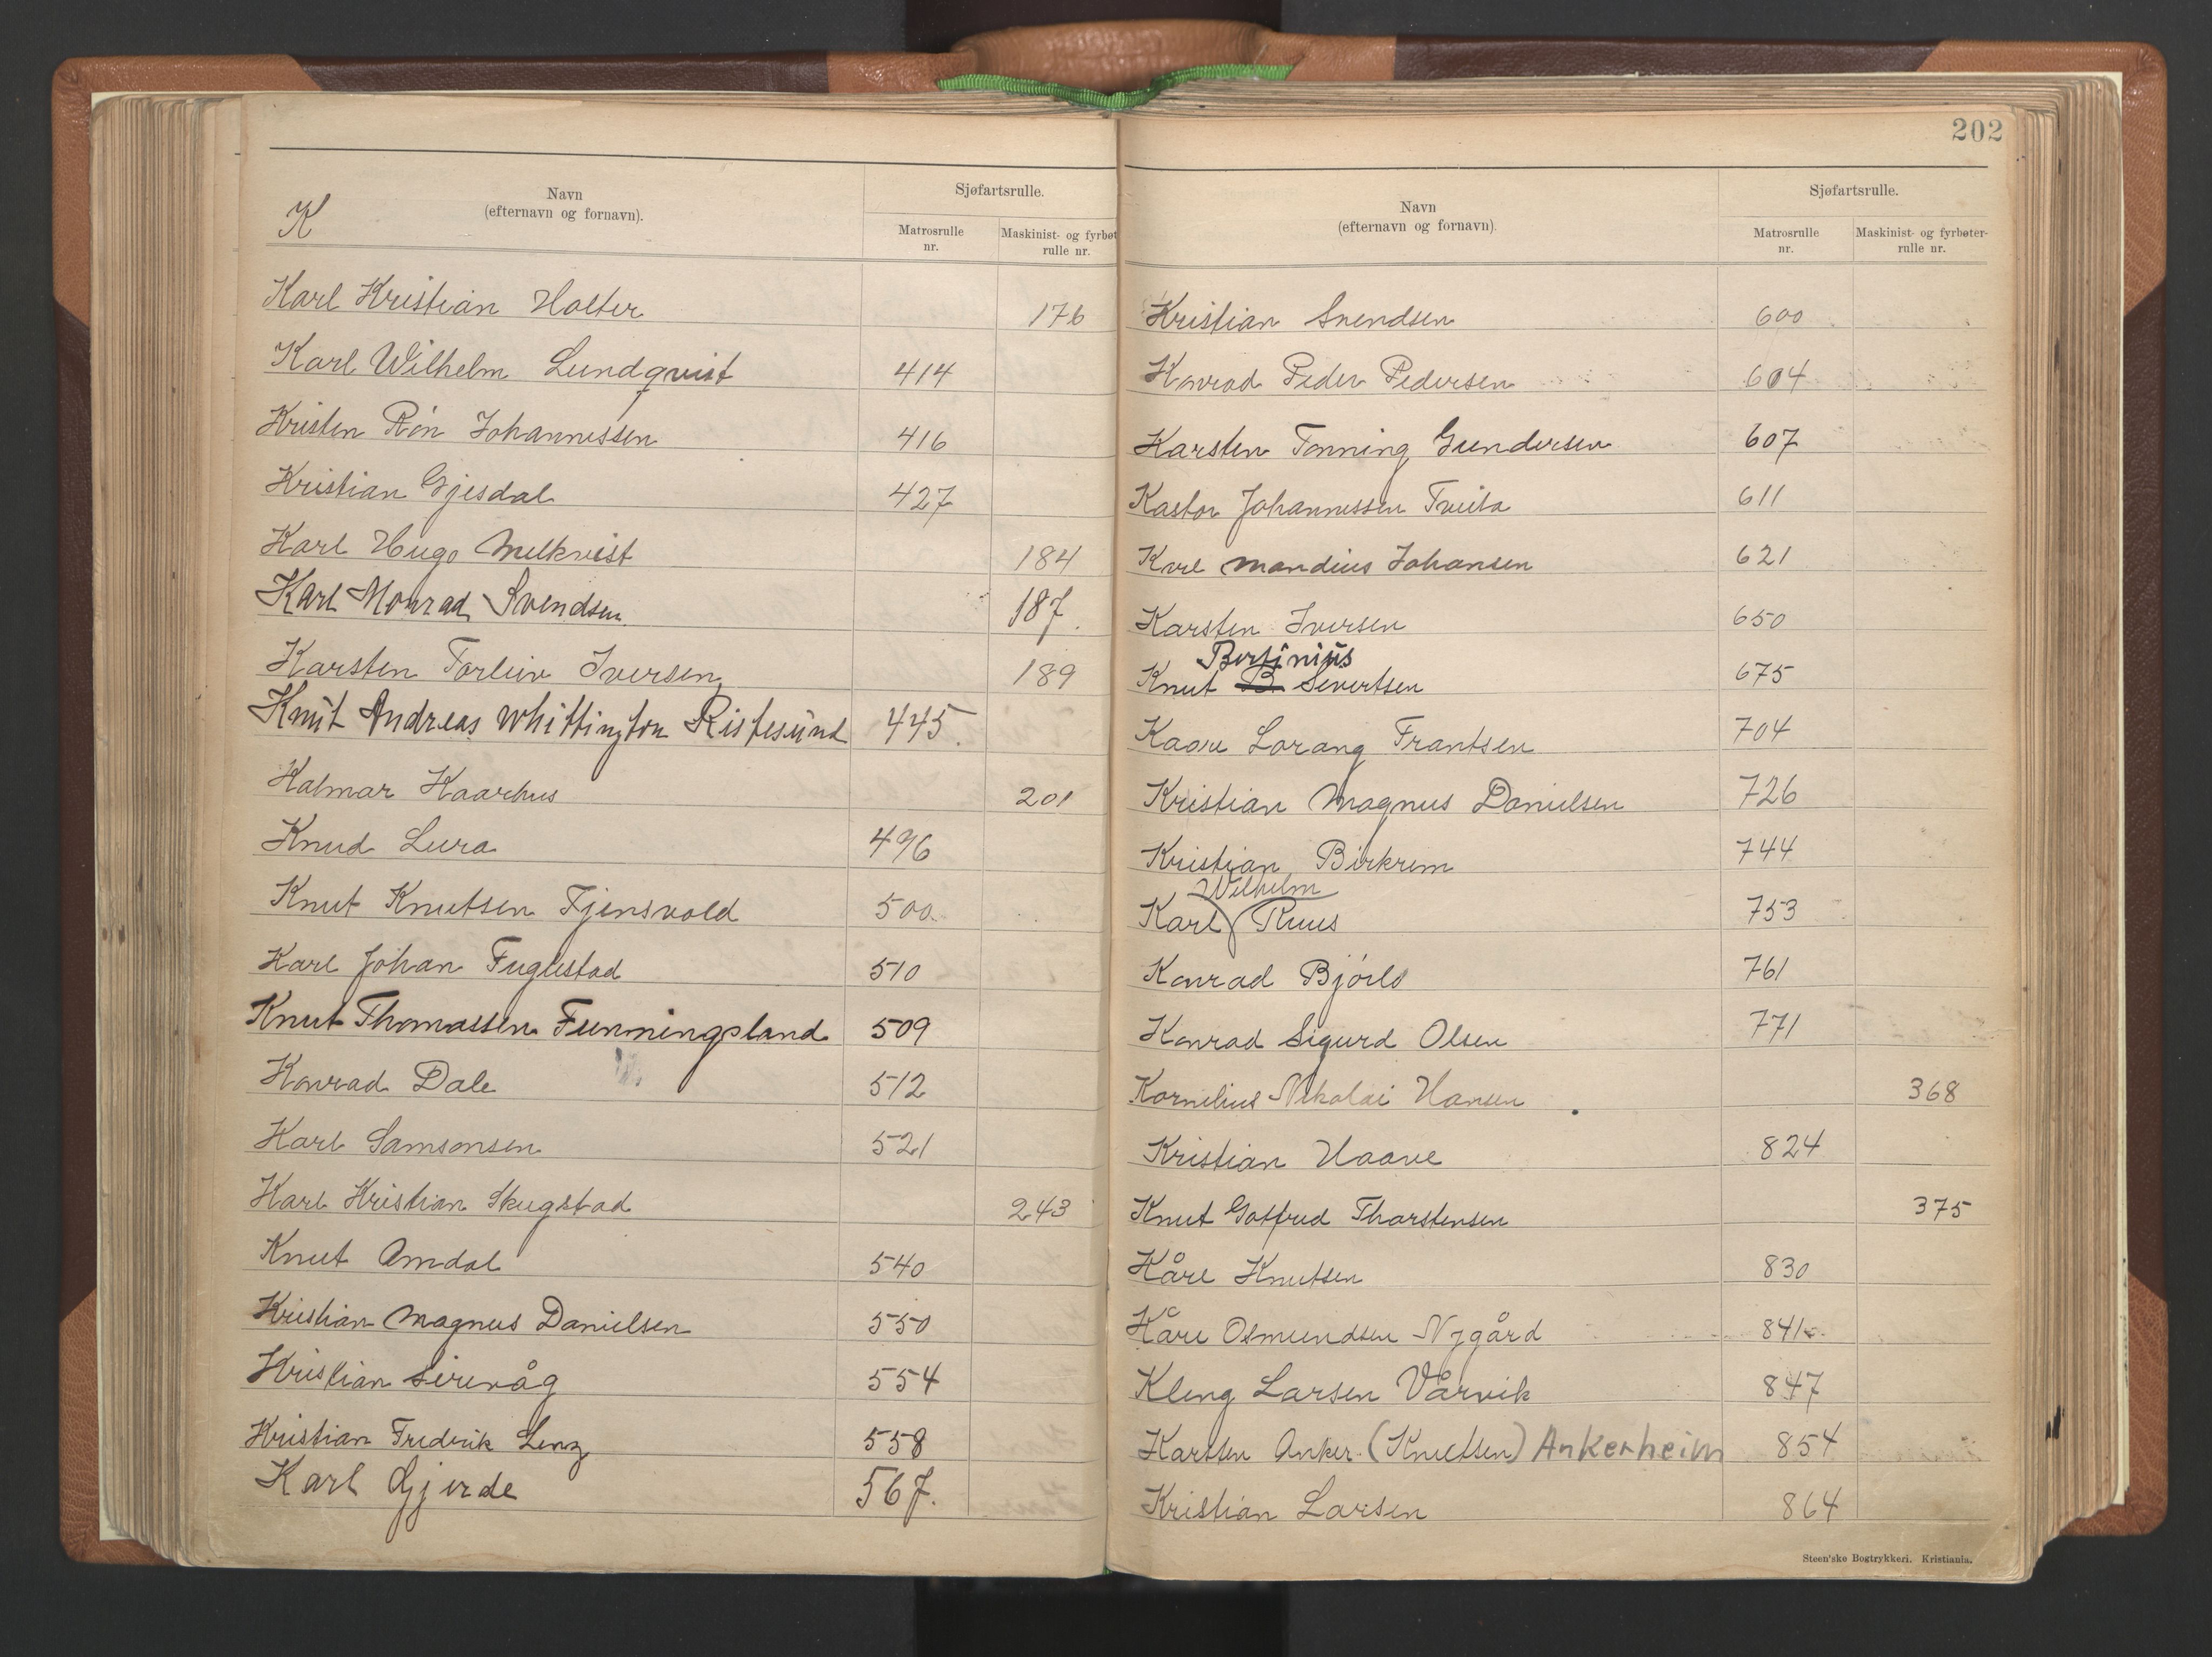 K
Navn
(efternavn og fornavn).
Sjøfartsrulle.
Matrosrulle nr.
Maskinist- og fyrbøt rulle nr.
Karl Kristian Holter 176
Karl Wilhelm Lundqvist 414
Kristen Røn Johannessen 416
Kristian Gjesdal 427
Karl Hugo Melkvist 184
Karl Monrad Svendsen 187.
Karsten Torleiv Iversen 189
Knut Andreas Whittington Ristesund 445.
Kalmar Haarhus 201
Knud Lura 496
Knut Knutsen Tjensvold 500
Karl Johan Fuglestad 510
Knut Thomassen Funningsland 509
Konrad Dale 512
Karl Samsonsen 521
Karl Kristian Skugstad 243
Knut Amdal 540
Kristian Magnus Danielsen 550
Kristian Sirevåg 554
Kristian Fredrik Lenz 558
Karl Gjerde 567.
202
Navn
(efternavn og fornavn).
Sjøfartsrulle.
Matrosrulle nr.
Maskinist- og fyrbøter- rulle nr.
Kristian Svendsen 600
Konrad Peder Pedersen 604
Karsten Tonning Gundersen 607
Kastor Johannessen Tveita 611
Karl Mandius Johansen 621
Karsten Iversen 650
Bertinius
Knut B. Severtsen 675
Kaare Lorang Frantsen 704
Kristian Magnus Danielsen 726
Kristian Birkrem 744
Wilhelm
Karl Ruus 753
Konrad Bjórlo 761
Konrad Sigurd Olsen 771
Kornelius Nikolai Hansen 368
Kristian Haave 824
Knut Gotfred Thorstensen 375
Kåre Knutsen 830
Kåre Osmundsen Nygård 841
Kleng Larsen Vårvik 847
Karsten Anker (Knutsen) Ankerheim 854
Kristian Larsen 864
Steen'ske Bogtrykkeri. Kristiania.